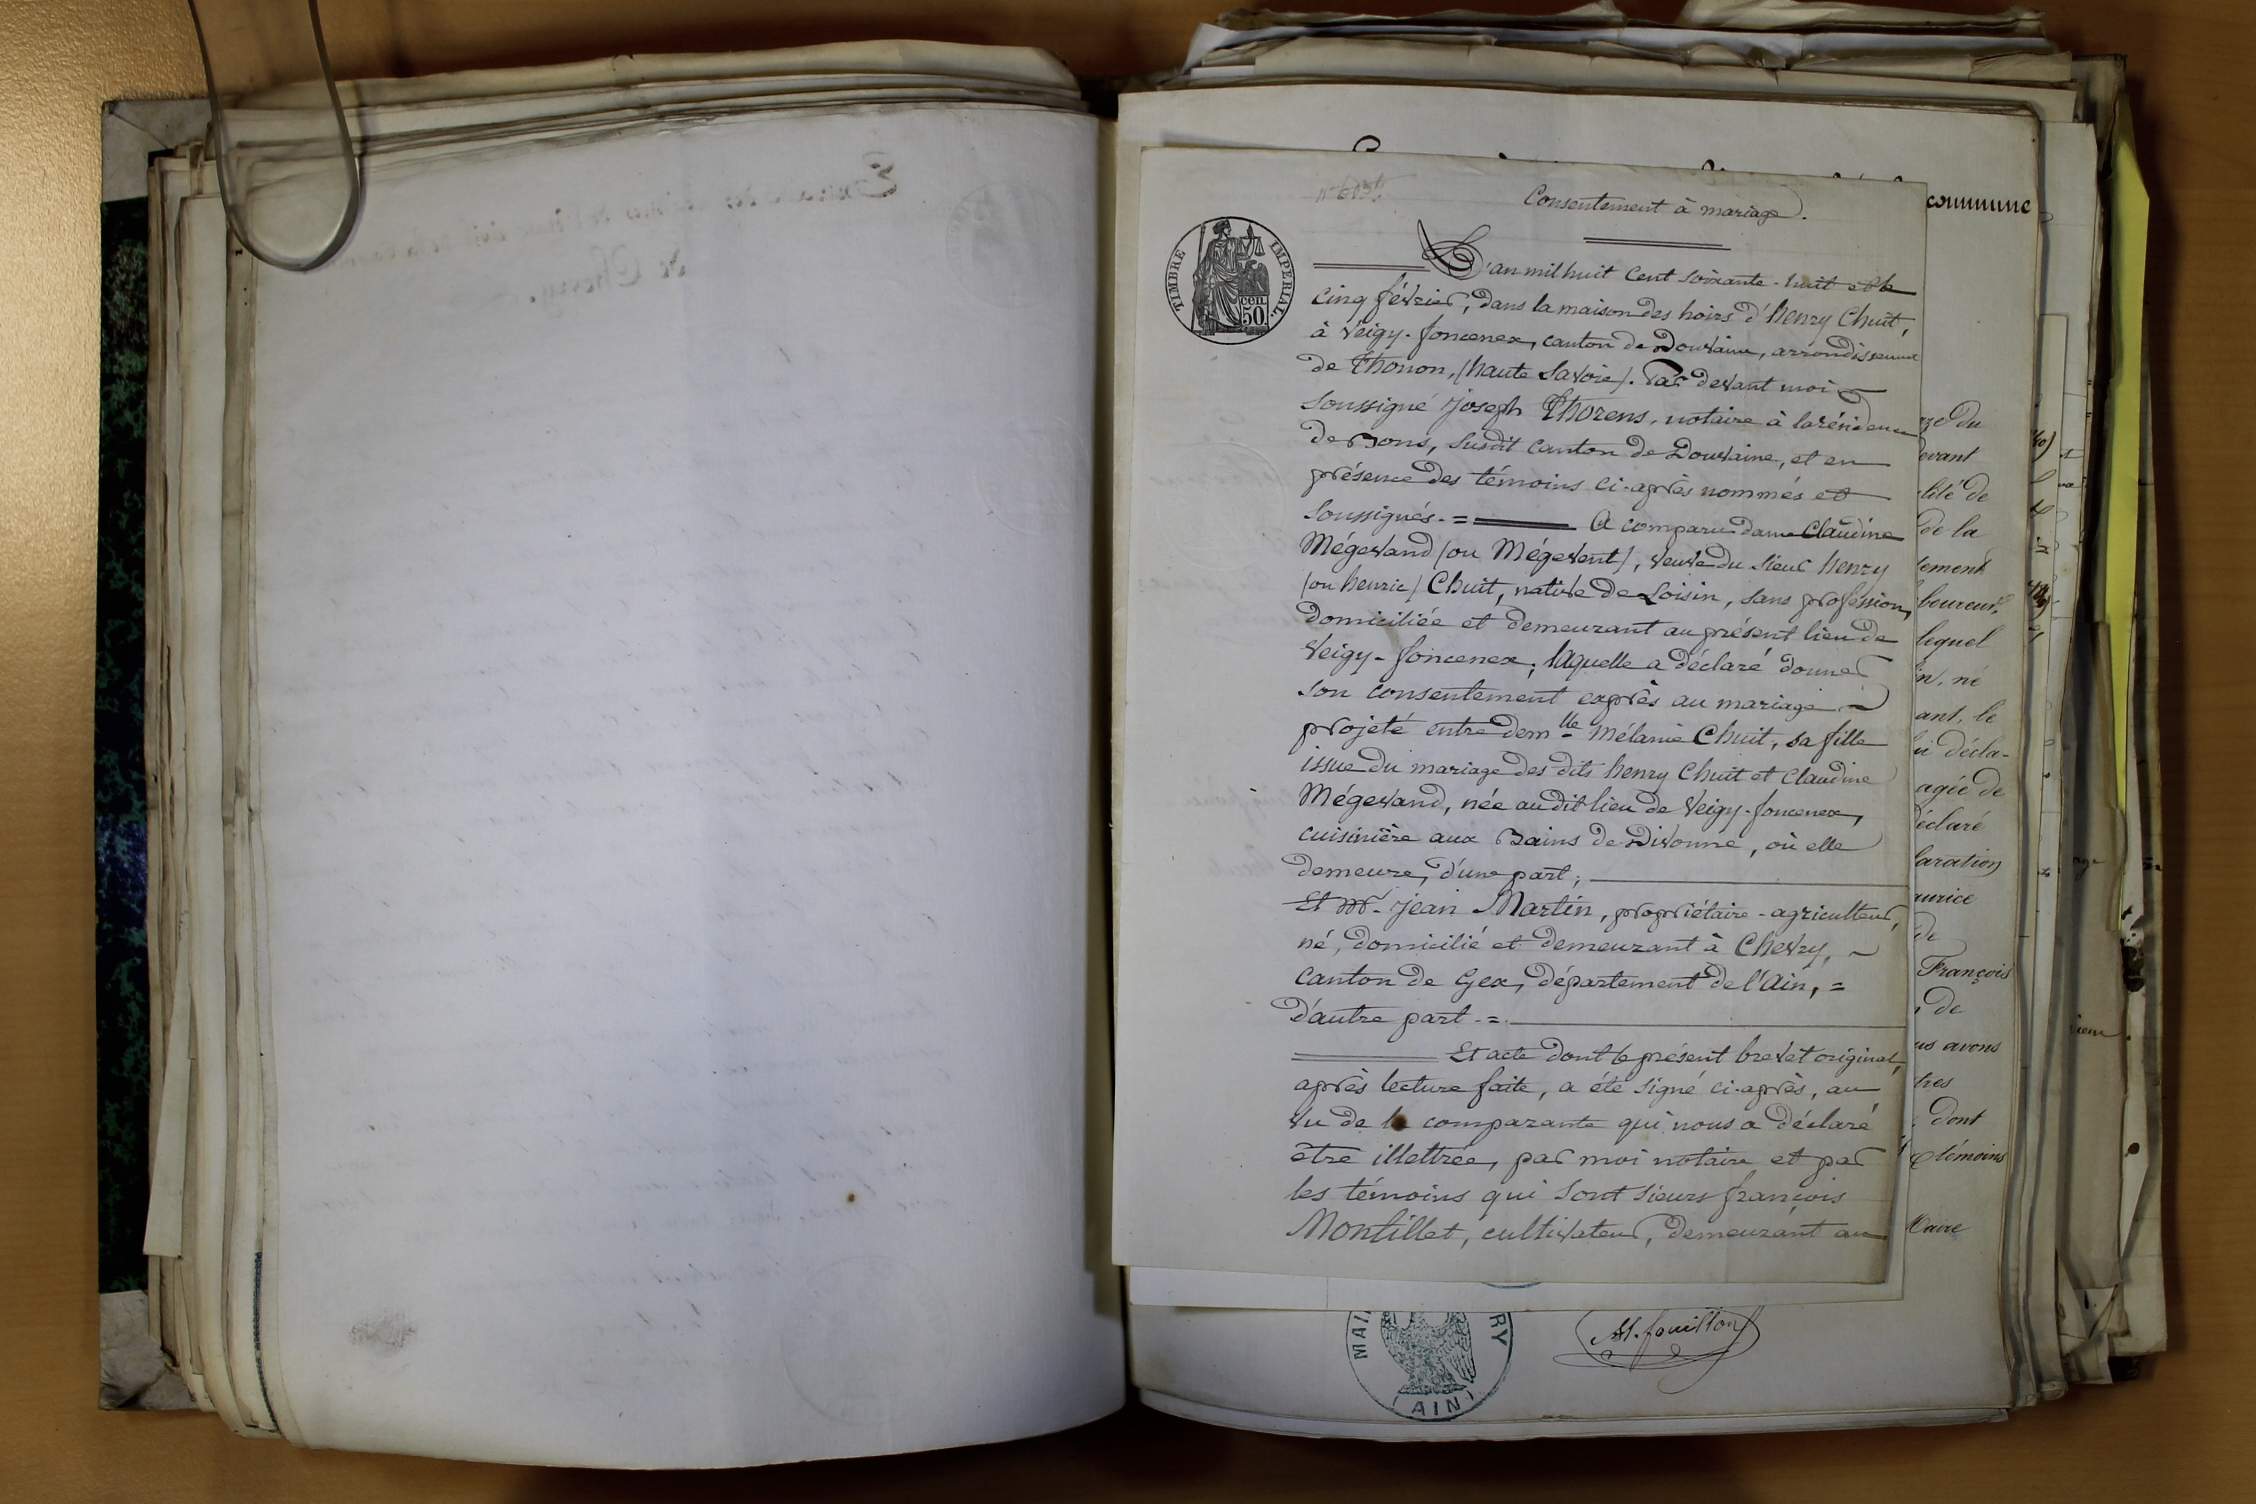 Consentement à mariage.
L'an mil huit cent soixante-huit et le
cinq février, dans la maison des hoirs d'henry Chuit,
à Veigy-foncenex, canton de Douvaine, arrondissement
de Thonon, (haute Savoie). Par devant moi
soussigné joseph Thorens, notaire à la résidence
de Bons, susdit canton de Douvaine, et en
présence des témoins ci-après nommés et
soussignés. = A comparu dame Claudine
Mégevand (ou Mégevent), veuve du sieur henry
(ou henrie) Chuit, native de Loisin, sans profession,
domiciliée et demeurant au présent lieu de
Veigy-foncenex; laquelle a déclaré donner
son consentement exprès au mariage
projeté entre dem.lle Mélanie Chuit, sa fille
issue du mariage des dits henry Chuit et Claudine
Mégevand, née audit lieu de Veigy-foncenex,
cuisinière aux Bains de Divonne, où elle
demeure, d'une part;
Et Mr. jean Martin, propriétaire-agriculteur,
né, domicilié et demeurant à Chevry,
canton de Gex, département de l'Ain, =
D'autre part. =
Et acte dont le présent brevet original,
après lecture faite, a été signé ci-après, au
vu de la comparante qui nous a déclaré
être illettrée, par moi notaire et par
les témoins qui sont sieurs françois
Montillet, cultivateur, demeurant au
TIMBRE IMPERIAL.
CEN. 50
commune
devant
de la
lequel
né
ant, le
agée de
François
de
us avons
dont
témoins
Maire
MAI RY
(AIN)